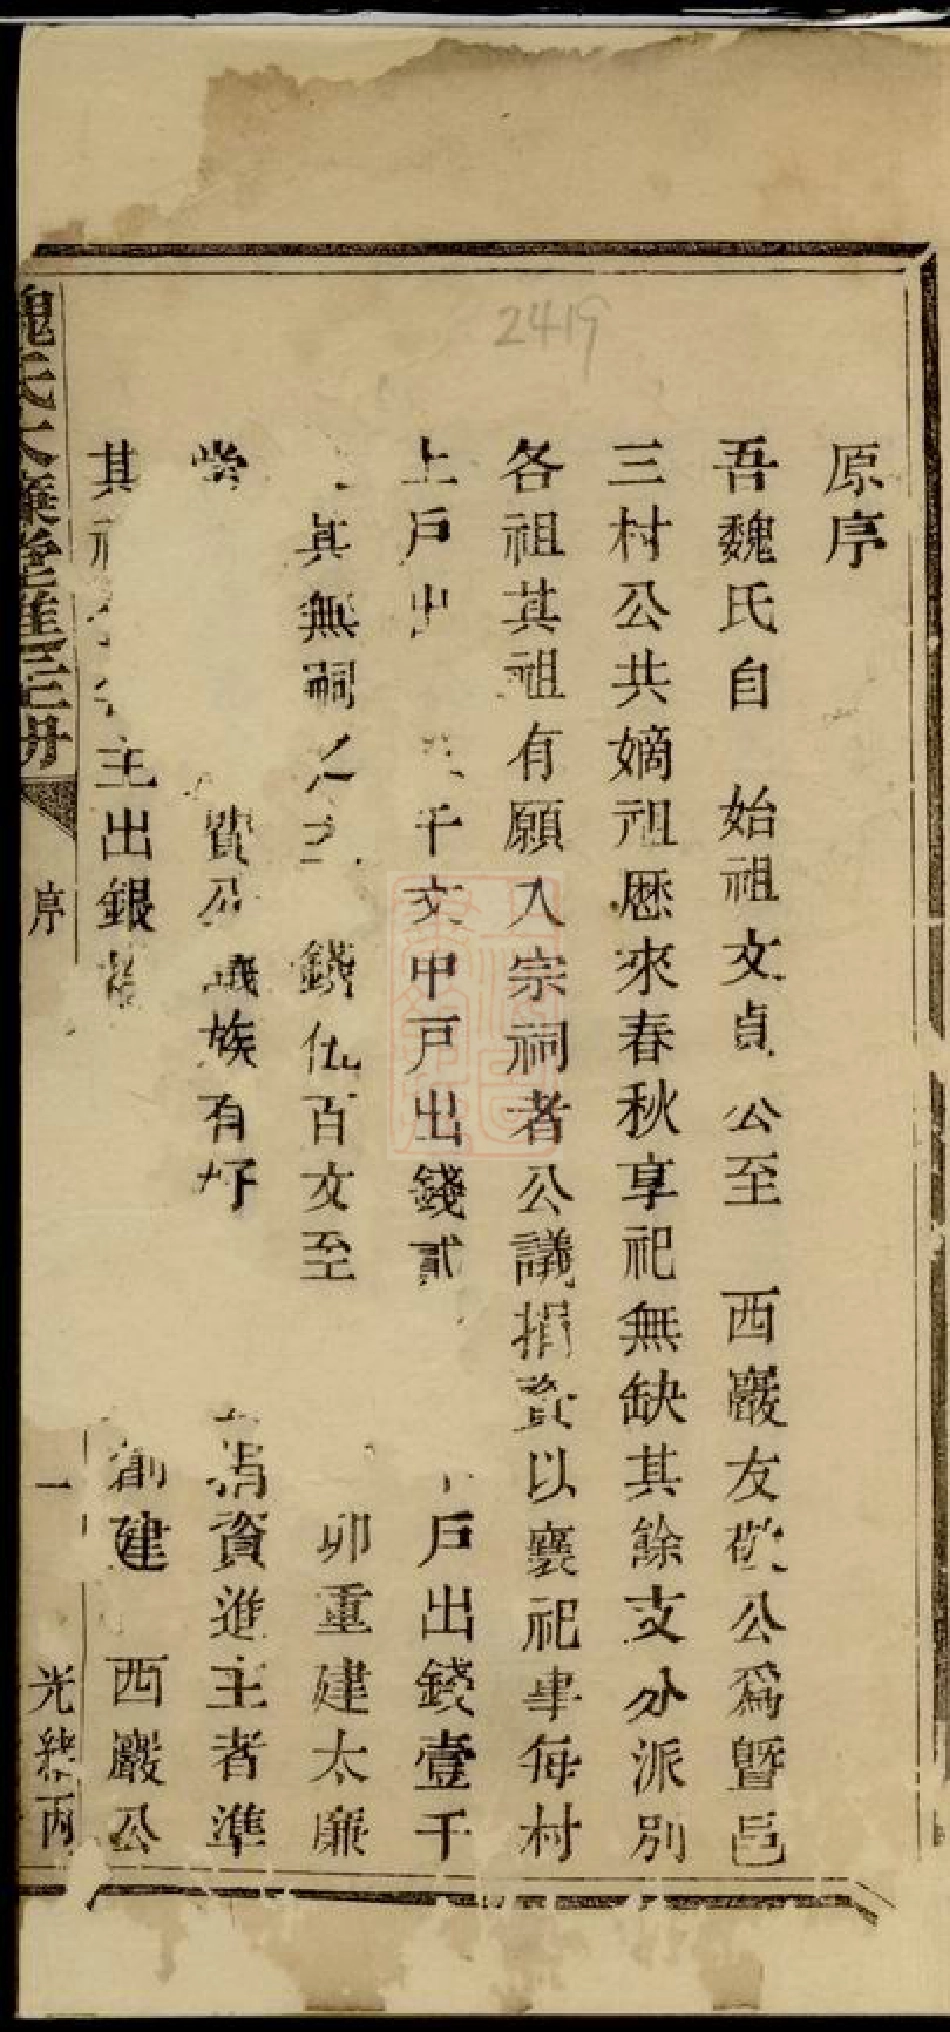 原序
吾魏氏自　始祖文貞公至　西巖友敬公爲暨邑
三村公共嫡祖歷來春秋享祀無缺其餘支分派別
各祖其祖有願入宗祠者公議捐資以襄祀事每村
上戶出　千文中戶出錢貳　戶出錢壹千
其無祠之主　錢伍百文至　卯重建太廉
堂　費公議族有好　捐資進主者準
其　主出銀　創建　西巖公
魏氏太廉堂進主冊　序　一　光緒丙
2419